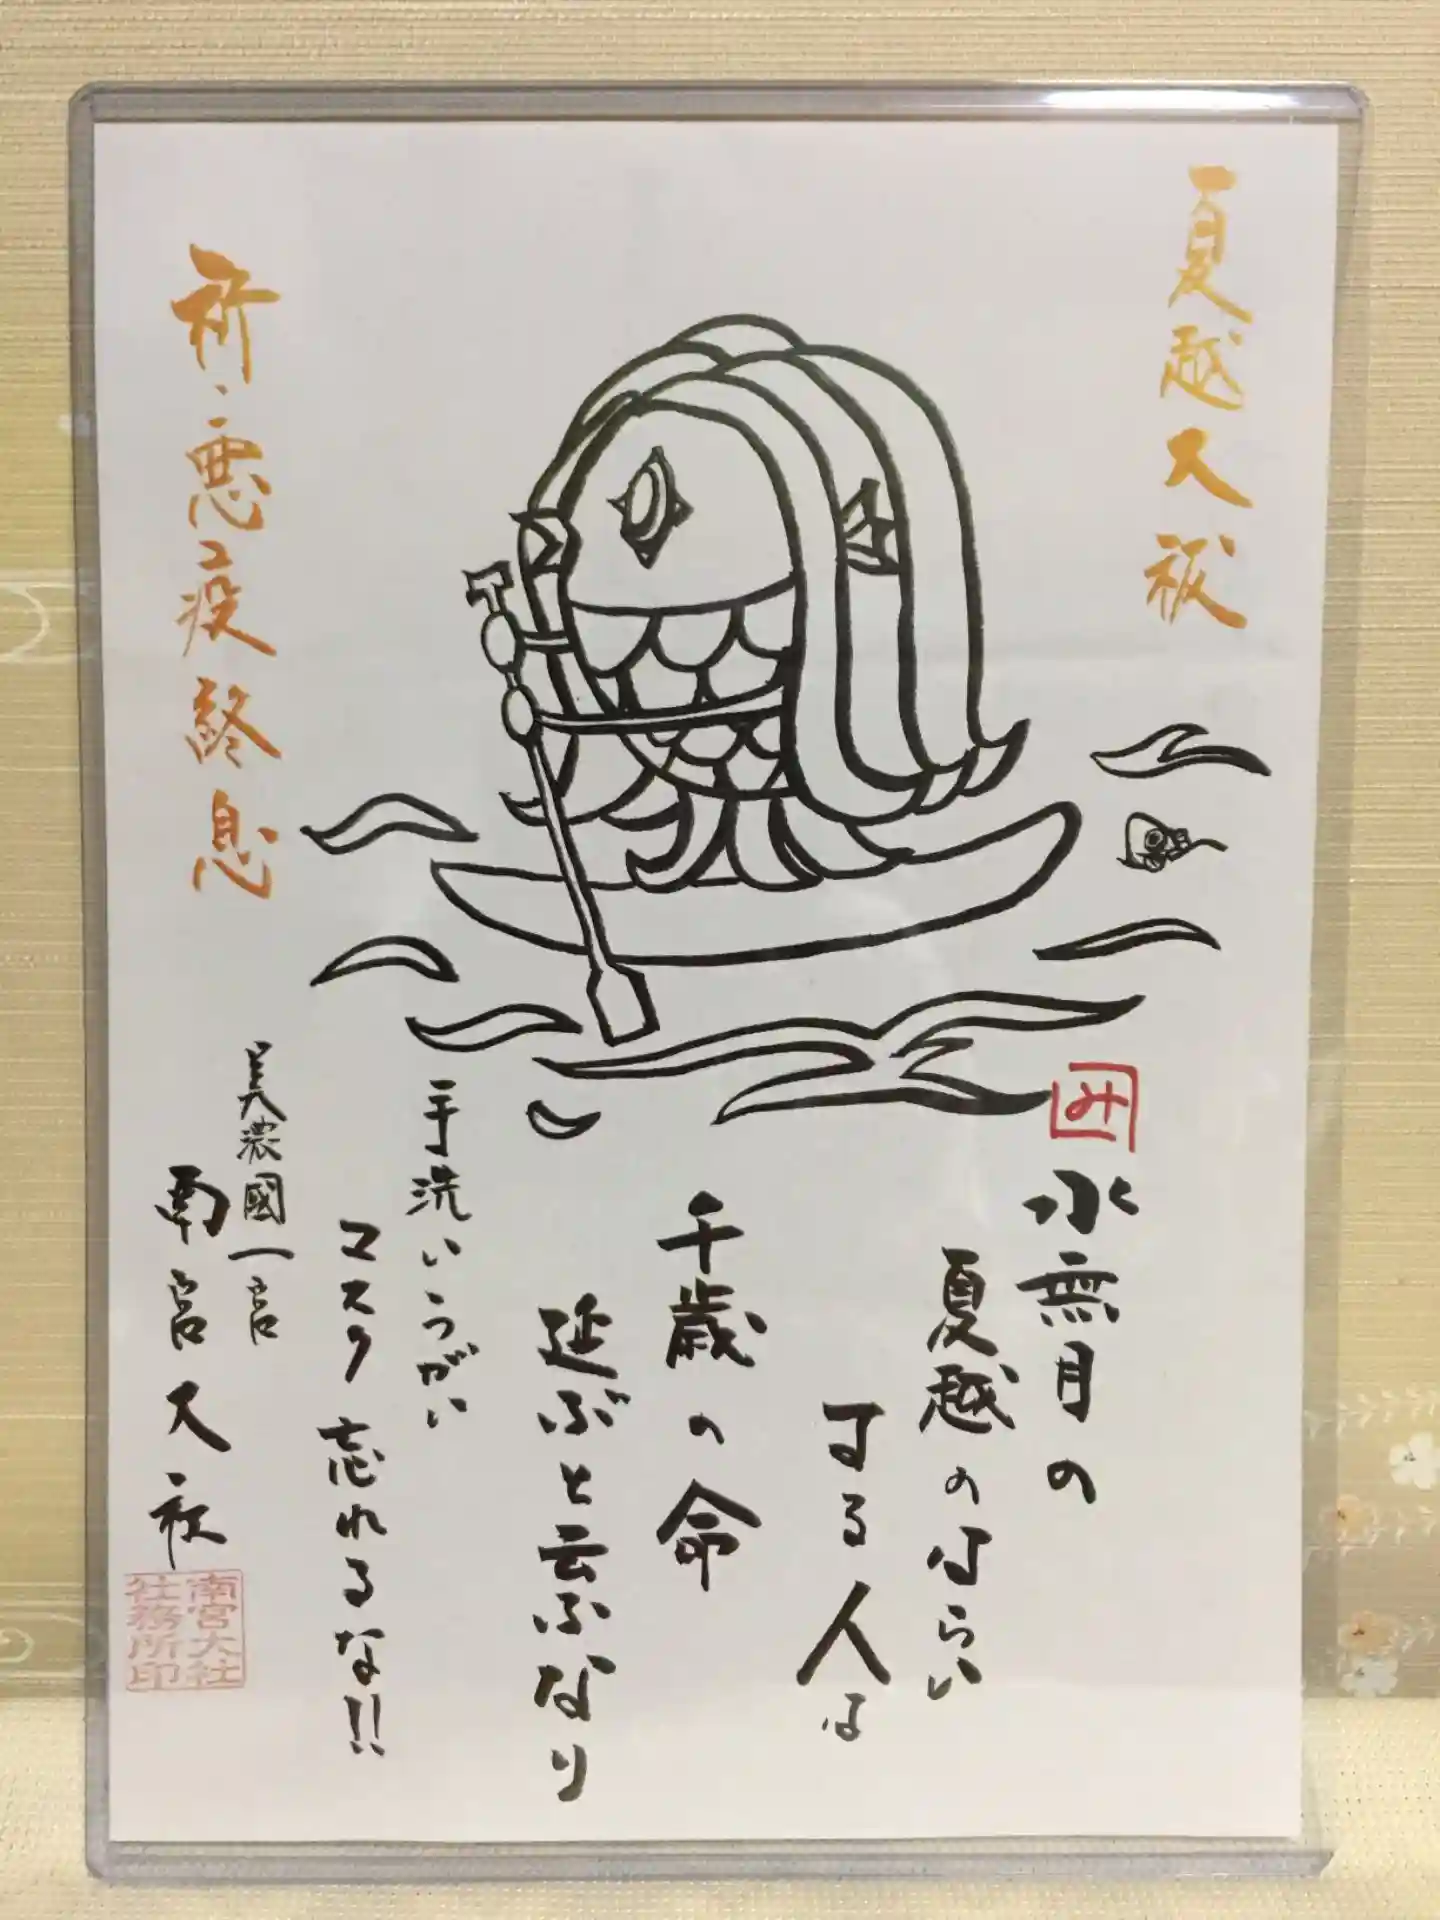 夏越大祓
祈・悪疫終息
み
水無月の
夏越のはらい
する人は
千歳の命
延ぶと云ふなり
手洗い・うがい
マスク忘れるな!!
美濃國一宮
南宮大社
南宮大社
社務所印